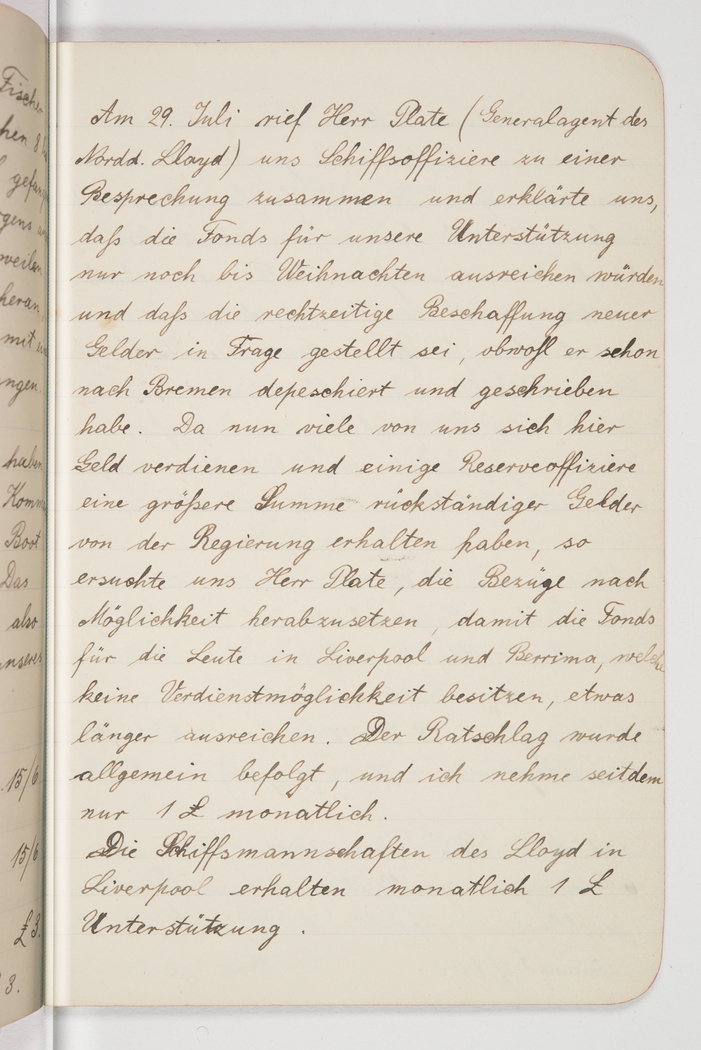 Am 29. Juli rief Herr Plate (Generalagent des
Nordd. Lloyd) uns Schiffsoffiziere zu einer
Besprechung zusammen und erklärte uns,
daß die Fonds für unsere Unterstützung
nur noch bis Weihnachten ausreichen würden
und daß die rechtzeitige Beschaffung neuer
Gelder in Frage gestellt sei, obwohl er schon
nach Bremen depeschiert und geschrieben
habe. Da nun viele von uns sich hier
Geld verdienen und einige Reserveoffiziere
eine größere Summe rückständiger Gelder
von der Regierung erhalten haben, so
ersuchte uns Herr Plate, die Bezüge nach
Möglichkeit herabzusetzen, damit die Fonds
für die Leute in Liverpool und Berrima, welche
keine Verdienstmöglichkeit besitzen, etwas
länger ausreichen. Der Ratschlag wurde
allgemein befolgt, und ich nehme seitdem
nur 1 £ monatlich.
Die Schiffsmannschaften des Lloyd in
Liverpool erhalten monatlich 1 £
Unterstützung.